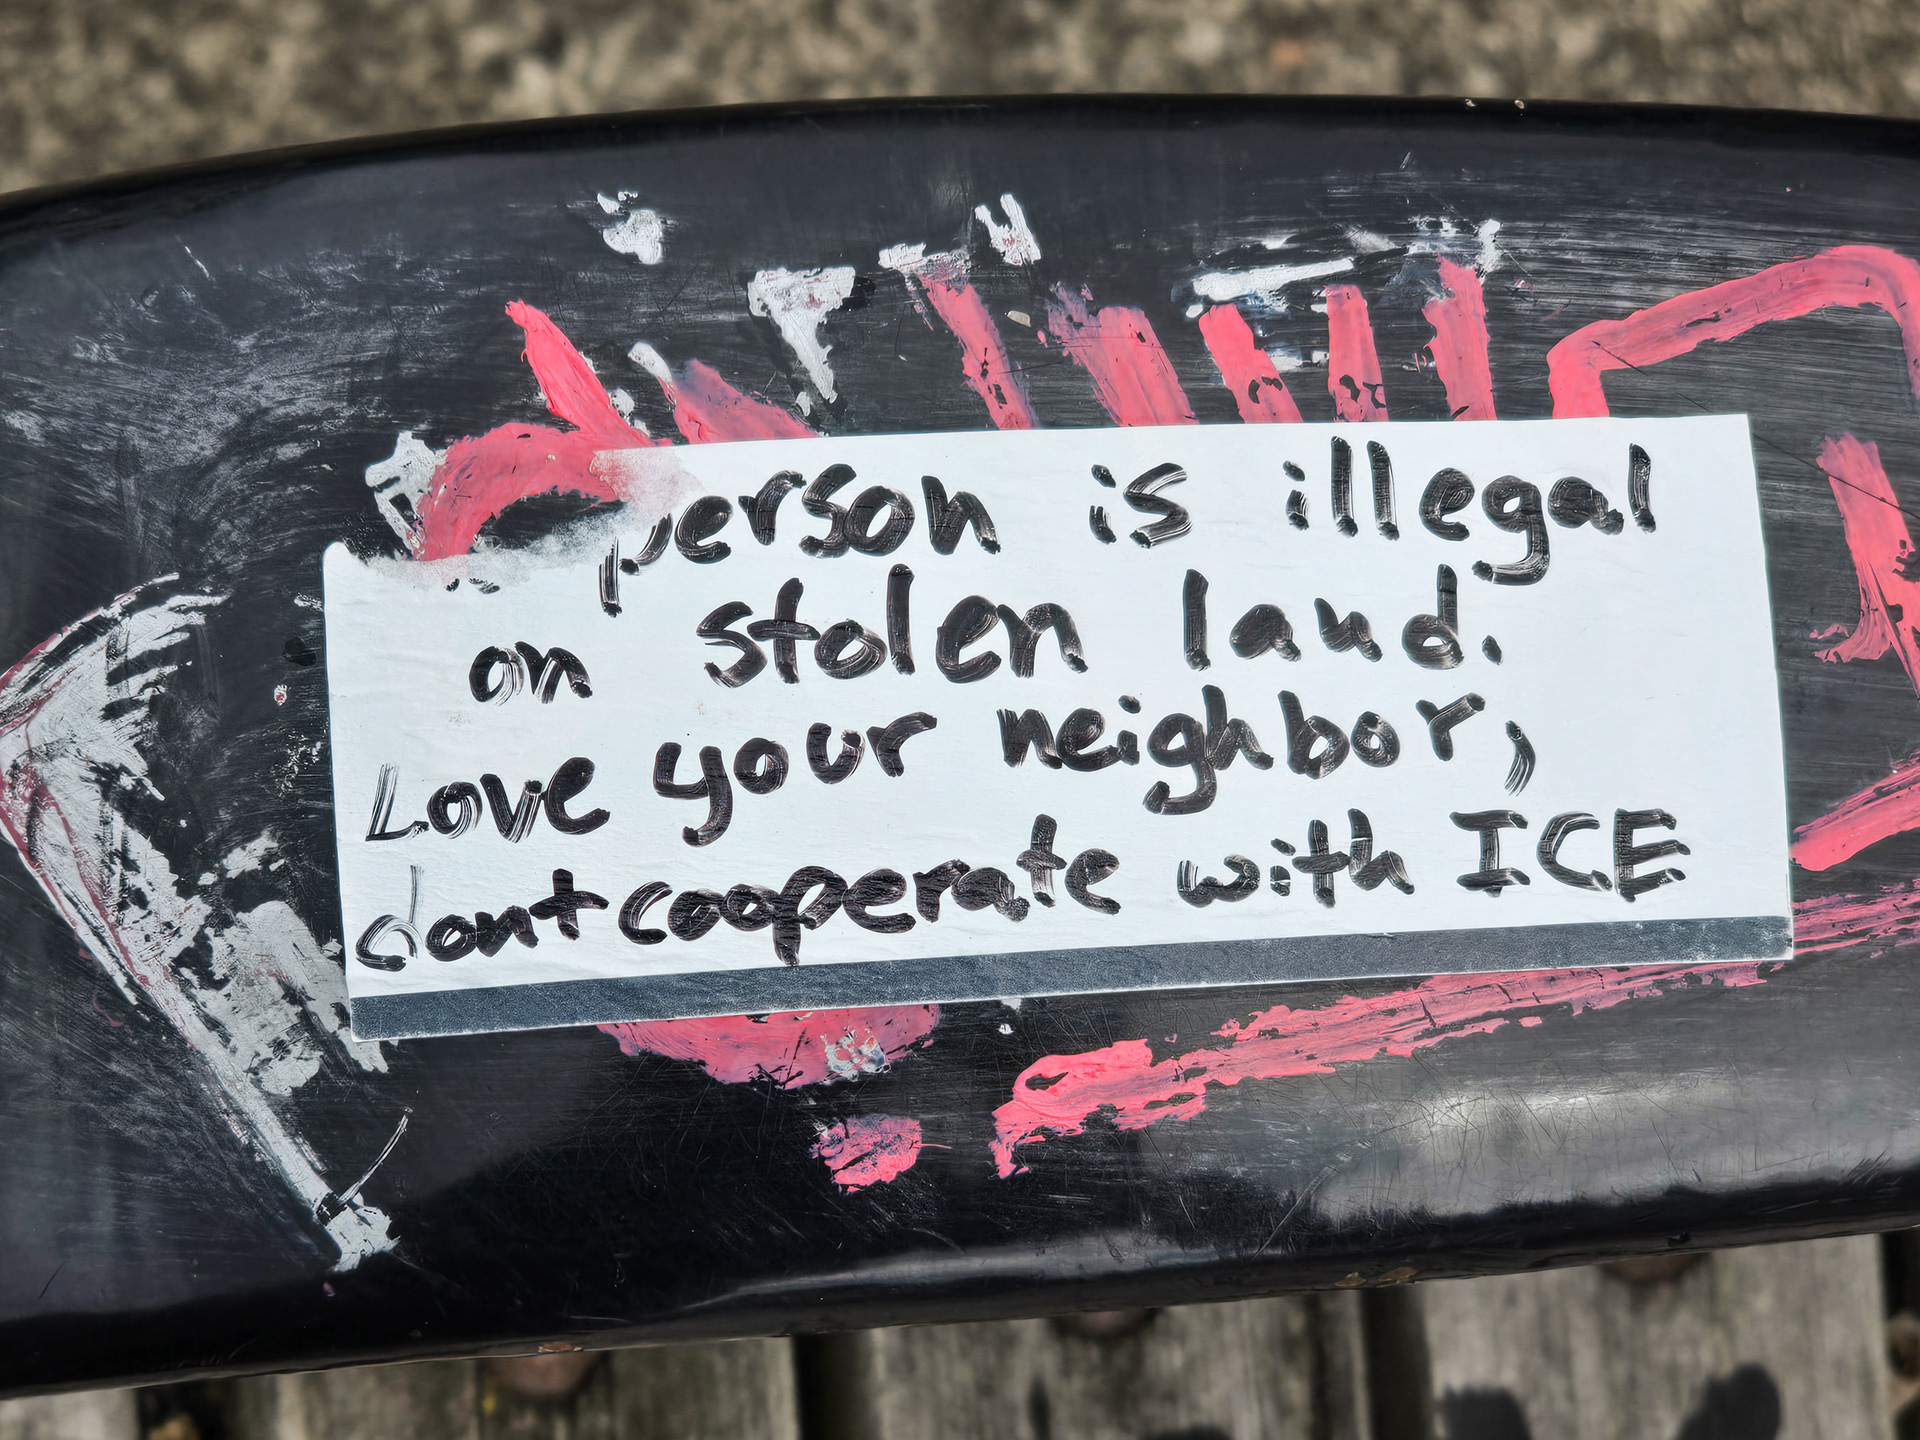 person is illegal
on stolen land.
Love your neighbor,
dont cooperate with ICE